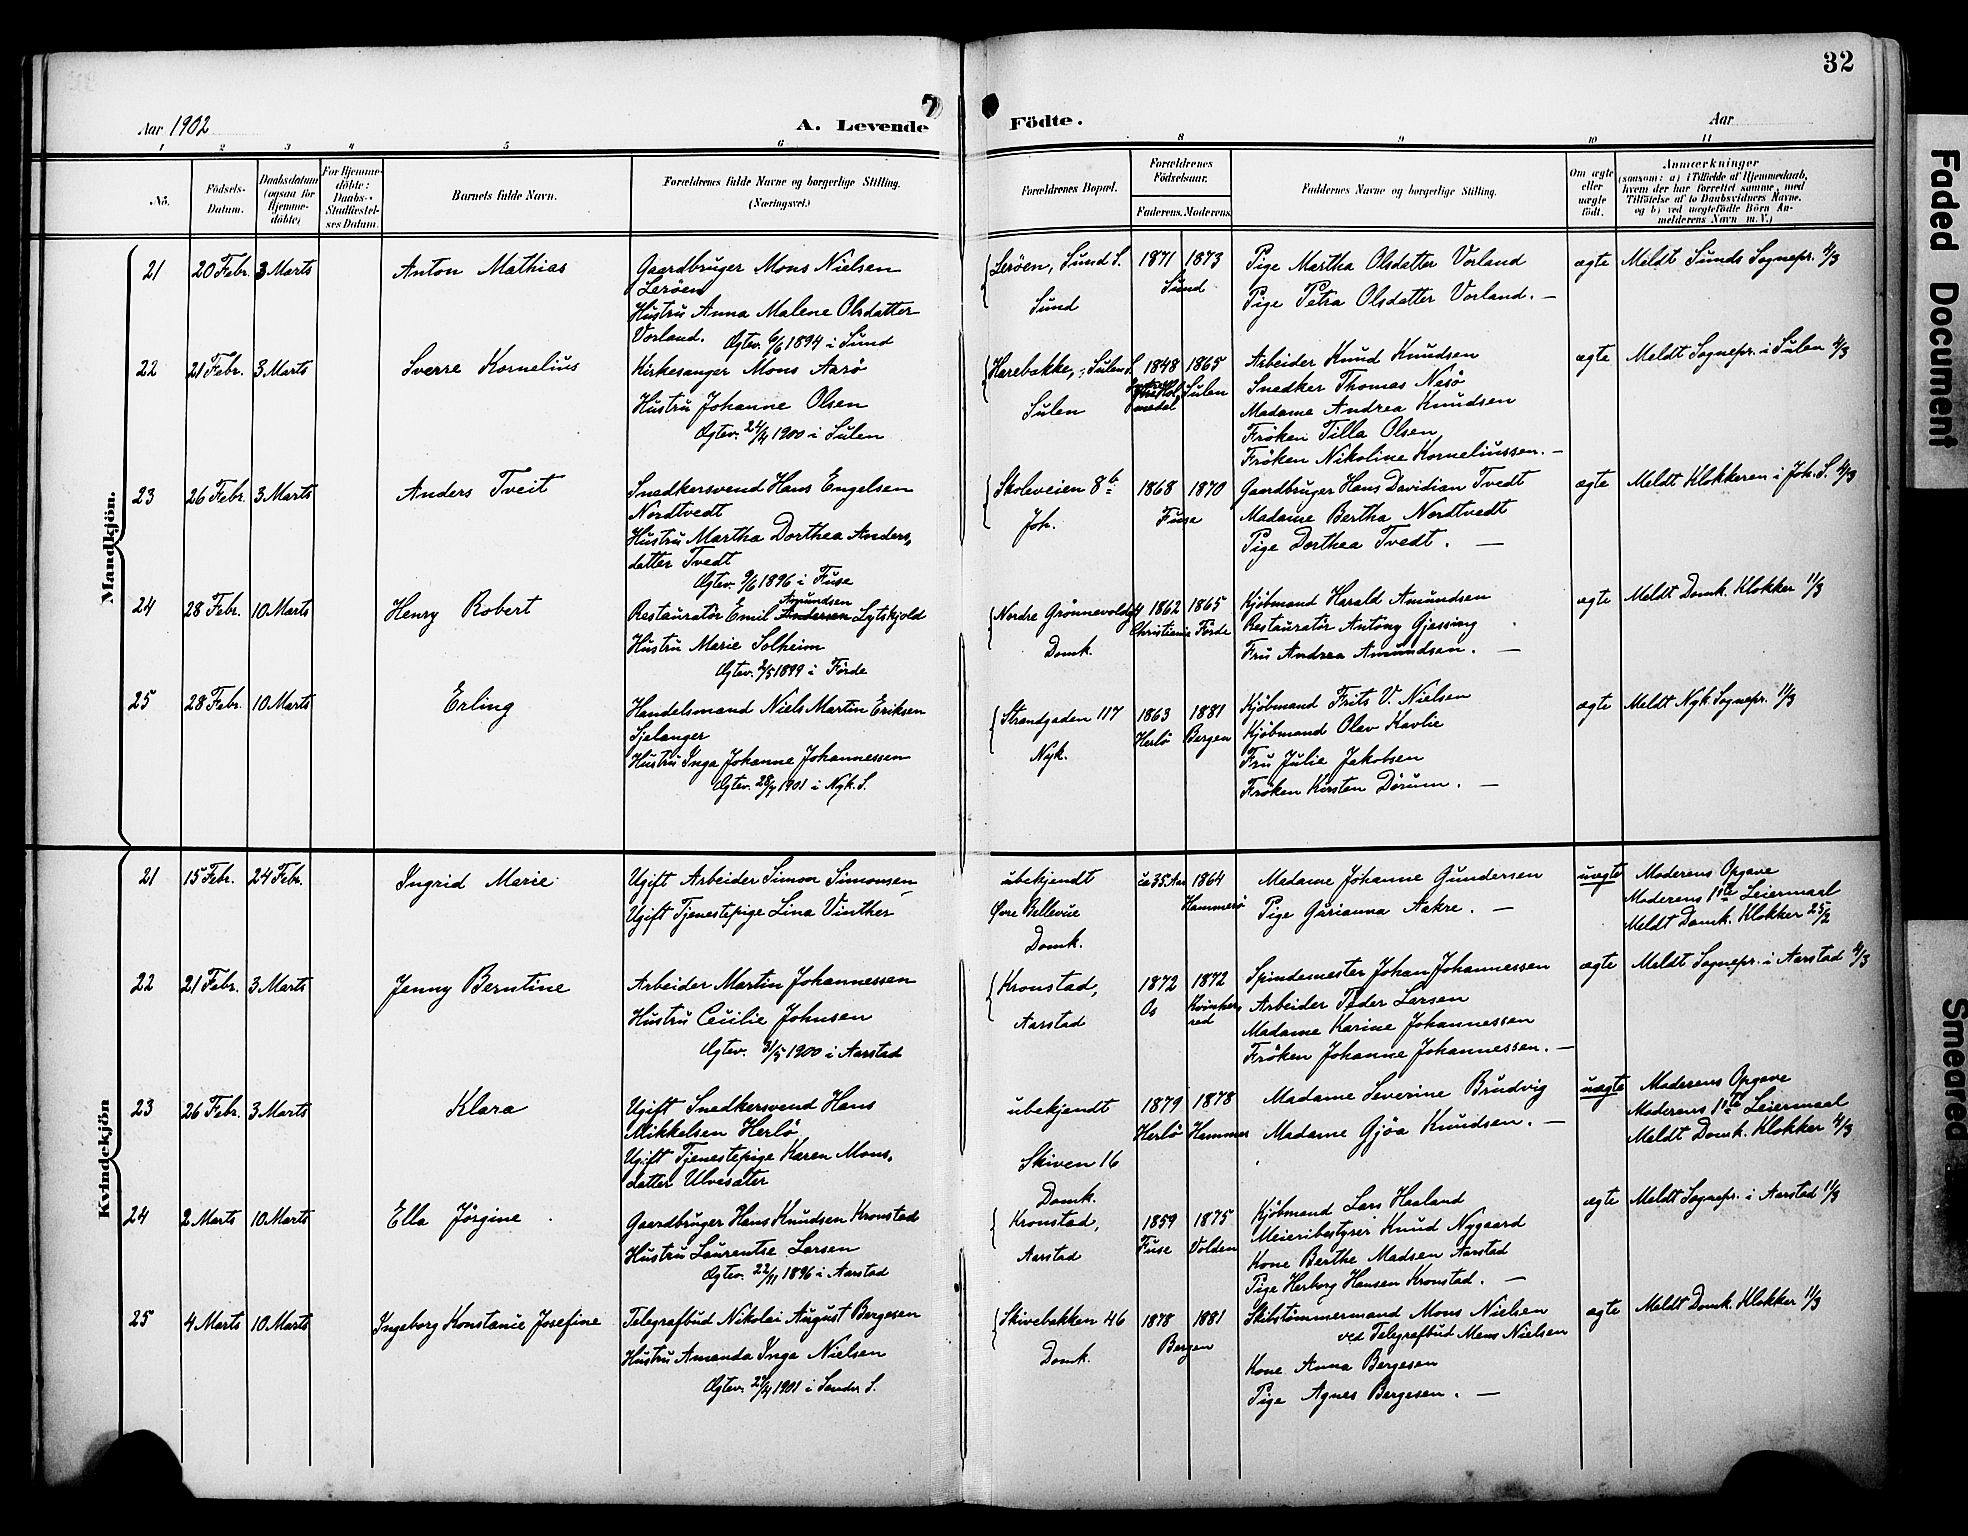 32
Aar 1902
A. Levende
Födte.
Aar
1 2 3 4 5 6 8 9 10 11
No.
Födsels-Datum.
Daabsdatum (ogsaa for Hjemme-döbte)
For Hjemme-döbte: Daabs-Stadfæstel-ses Datum.
Barnets fulde Navn.
Forældrenes fulde Navne og borgerlige Stilling. (Næringsvei.)
Forældrenes Bopæl.
Forældrenes Födselsaar.
Faderens. Moderens.
Faddernes Navne og borgerlige Stilling.
Om ægte eller uægte födt.
Anmærkninger
(saasom: a) i Tilfælde af Hjemmedaab, hvem der har forrettet samme, med Tilföielse af to Daabsvidners Navne, og b) ved uægtefödte Börn An-melderens Navn m. V.)
Mandkjön.
21 20 Febr. 3 Marts Anton Mathias
Gaardbruger Mons Nielsen
Leröen
Hustru Anna Malene Olsdatter
Vorland. Ægtev. 6/6 1894 i Sund
Leröen, Sund S.
Sund
1871 1873
Sund
Pige Martha Olsdatter Vorland
Pige Petra Olsdatter Vorland. —
ægte Meldt Sunds Sognepr. 4/3
22 21 Febr. 3 Marts Sverre Kornelius
Kirkesanger Mons Aarö
Hustru Johanne Olsen
Ægtev. 24/4 1900 i Sulen
Harebakke, Sulen S.
Sulen
1848 1865
Sulen
Arbeider Knud Knudsen
Snedker Thomas Nesö
Madame Andrea Knudsen
Fröken Tilla Olsen
Fröken Nikoline Korneliussen. —
ægte Meldt Sognepr. i Sulen 4/3
23 26 Febr. 3 Marts Anders Tveit
Snedkersvend Hans Engelsen
Nordtvedt
Hustru Martha Dorthea Anders,
datter Tvedt
Ægtev. 9/6 1896 i Fuse
Skoleveien 8b
Joh.
1868 1870
Fuse
Gaardbruger Hans Davidian Tvedt
Madame Bertha Nordtvedt
Pige Dorthea Tvedt. —
ægte Meldt Klokkeren i Joh. S. 4/3
24 28 Febr. 10 Marts Henry Robert
Amundsen
Restauratör Emil Andersen Lytskjold
Hustru Marie Solheim
Ægtev. 2/5 1899 i Förde
Nordre Grönnevold 4
Domk.
1862 1865
Christiania Förde
Kjöbmand Harald Amundsen
Restauratör Antony Gjessing
Fru Andrea Amundsen. —
ægte Meldt Domk. Klokker 11/3
25 28 Febr. 10 Marts Erling
Handelsmand Niels Martin Eriksen
Sjelanger
Hustru Inga Johanne Johannessen
Ægtev. 28/4 1901 i Nyk. S.
Strandgaden 117
Nyk.
1863 1881
Herlö Bergen
Kjöbmand Frits V. Nielsen
Kjöbmand Olav Kavlie
Fru Julie Jakobsen
Fröken Kirsten Dörum. —
ægte Meldt Nyk. Sognepr. 11/3
Kvindekjön
21 15 Febr. 24 Febr. Ingrid Marie
Ugift Arbeider Simon Simonsen
Ugift Tjenestepige Lina Vinther
ubekjendt
Övre Bellevue
Domk.
ca 35 Aar 1864
Hammerö
Madame Johanne Gundersen
Pige Garianna Aakre. —
uægte Moderens Opgave
Moderens 1ste Leiermaal
Meldt Domk. Klokker 25/2
22 21 Febr. 3 Marts Jenny Berntine
Arbeider Martin Johannessen
Hustru Cecilie Johnsen
Ægtev. 31/5 1900 i Aarstad
Kronstad,
Aarstad
1872 1872
Os Kvinher,
red
Spindemester Johan Johannessen
Arbeider Peder Larsen
Madame Karine Johannessen
Fröken Johanne Johannessen. —
ægte Meldt Sognepr. i Aarstad 4/3
23 26 Febr. 3 Marts Klara
Ugift Snedkersvend Hans
Mikkelsen Herlö
Ugift Tjenestepige Karen Mons,
datter Ulvesæter
ubekjendt
Skiven 16
Domk.
1879 1878
Herlö Hammer
Madame Severine Brudvig
Madame Gjöa Knudsen. —
uægte Moderens Opgave
Moderens 1ste Leiermaal
Meldt Domk. Klokker 4/3
24 2 Marts 10 Marts Ella Jörgine
Gaardbruger Hans Knudsen Kronstad
Hustru Laurentse Larsen
Ægtev. 22/11 1896 i Aarstad
Kronstad,
Aarstad
1859 1875
Fuse Volden
Kjöbmand Lars Haaland
Meieribestyrer Knud Nygaard
Kone Berthe Madsen Aarstad
Pige Herborg Hansen Kronstad. —
ægte Meldt Sognepr. i Aarstad 11/3
25 4 Marts 10 Marts Ingeborg Konstanse Josefine
Telegrafbud Nikolai August Bergesen
Hustru Amanda Inga Nielsen
Ægtev. 21/4 1901 i Sandv. S.
Skivebakken 46
Domk.
1878 1881
Bergen
Skibstömmermand Mons Nielsen
ved Telegrafbud Mons Nielsen
Kone Anna Bergesen
Pige Agnes Bergesen. —
ægte Meldt Domk. Klokker 11/3
Faded Document
Smeared